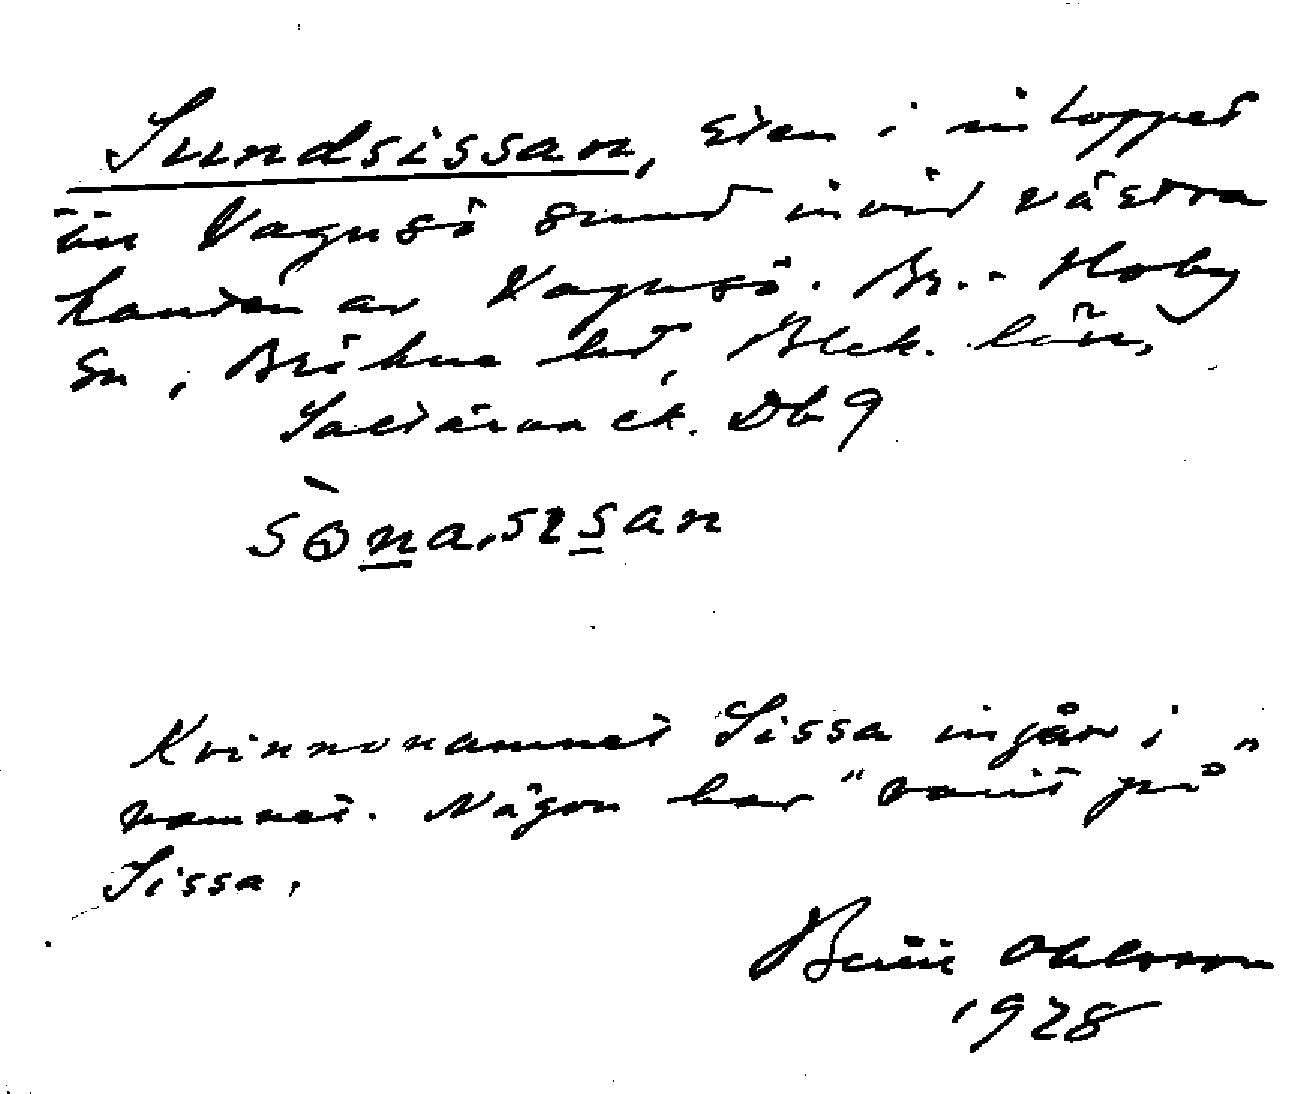 Sundsissan, sten i inloppet
till Vagnsö sund invid västra
kanten av Vagnsö. Br.-Hoby
sn, Bräkne hd, Blek. län,
Saltärna ek. Db 9
sònasısan
Kvinnonamnet Sissa ingår i
namnet. Någon har "varit på"
Sissa.
Bertil Ohlsson
1928